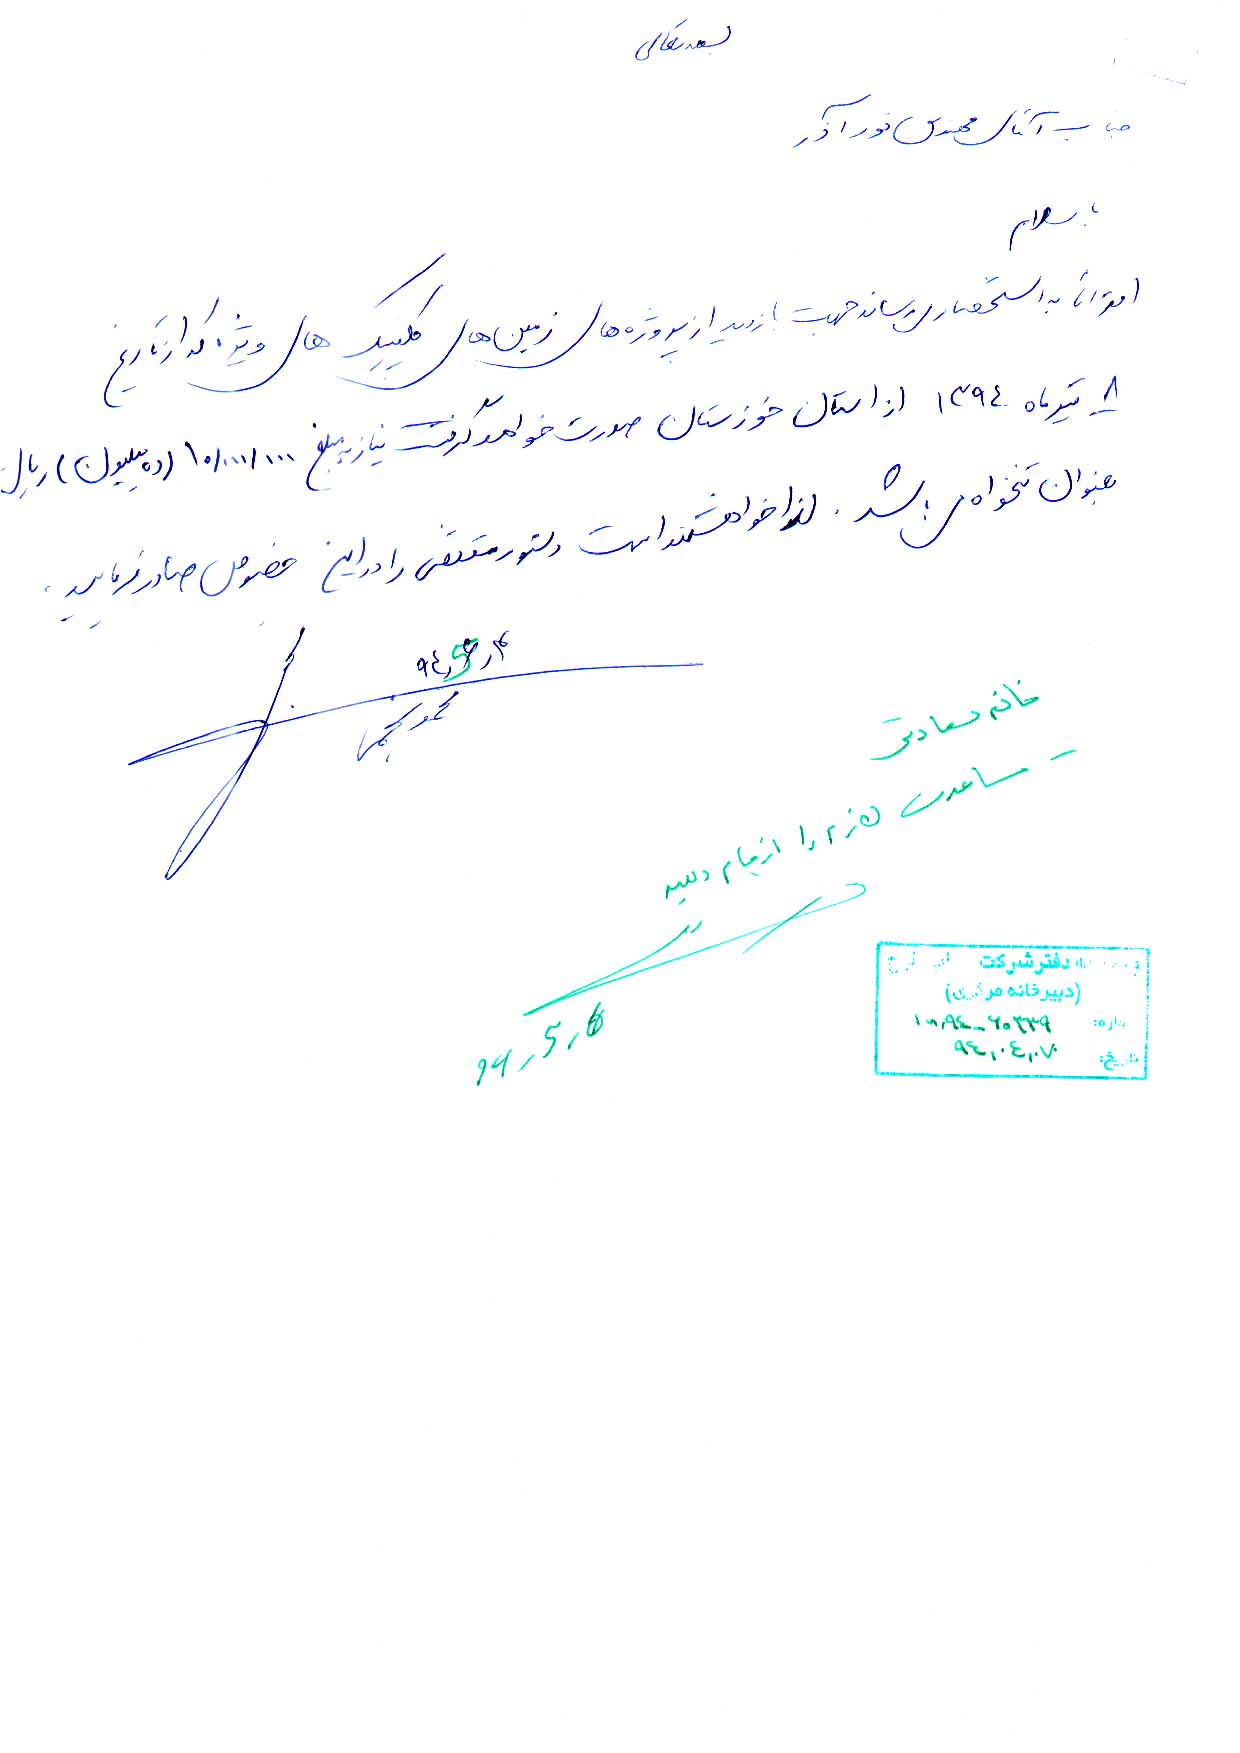 بسمه تعالی
جناب آقای مهندس نورآذر
با سلام
احتراماً به استحضار می رساند جهت بازدید از پروژه های زمین های کلینیک های ویژه که از تاریخ
۸ تیرماه ۱۳۹۴ از استان خوزستان صورت خواهد گرفت نیاز به مبلغ ۱۰/۰۰۰/۰۰۰ (ده میلیون) ریال
بعنوان تنخواه می باشد. لذا خواهشمند است دستور مقتضی را در این خصوص صادر فرمایید.
محمود
خانم سعادتی
- مساعدت لازم را انجام دهید
دفتر شرکت
(دبیرخانه مرکزی)
تاریخ: ۹۴,۰۴,۰۷